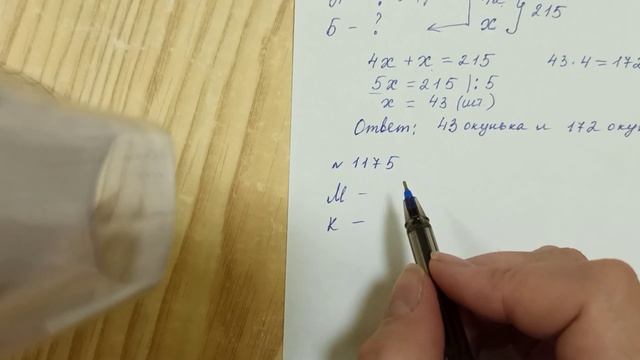 Б - ? x } 215
4x + x = 215 43 · 4 = 172
5x = 215 | : 5
x = 43 (шт)
Ответ: 43 окунька и 172 окун
№ 1175
М -
К -